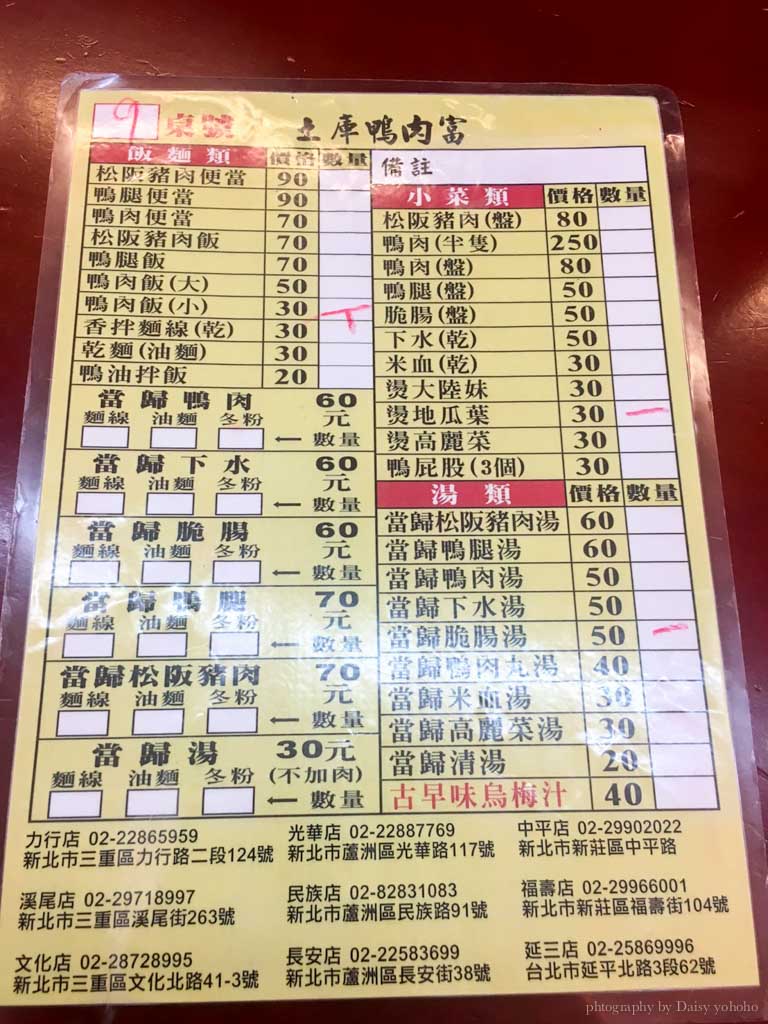 9 桌號 土庫鴨肉富
飯麵類 價格 數量
松阪豬肉便當 90
鴨腿便當 90
鴨肉便當 70
松阪豬肉飯 70
鴨腿飯 70
鴨肉飯(大) 50
鴨肉飯(小) 30
香拌麵線(乾) 30
乾麵(油麵) 30
鴨油拌飯 20
當歸鴨肉 60元
麵線 油麵 冬粉
←數量
當歸下水 60元
麵線 油麵 冬粉
←數量
當歸脆腸 60元
麵線 油麵 冬粉
←數量
當歸鴨腿 70元
麵線 油麵 冬粉
←數量
當歸松阪豬肉 70元
麵線 油麵 冬粉
←數量
當歸湯 30元
麵線 油麵 冬粉 (不加肉)
←數量
備註
小菜類 價格 數量
松阪豬肉(盤) 80
鴨肉(半隻) 250
鴨肉(盤) 80
鴨腿(盤) 50
脆腸(盤) 50
下水(乾) 50
米血(乾) 30
燙大陸妹 30
燙地瓜葉 30 一
燙高麗菜 30
鴨屁股(3個) 30
湯類 價格 數量
當歸松阪豬肉湯 60
當歸鴨腿湯 60
當歸鴨肉湯 50
當歸下水湯 50
當歸脆腸湯 50 一
當歸鴨肉丸湯 40
當歸米血湯 30
當歸高麗菜湯 30
當歸清湯 20
古早味烏梅汁 40
力行店 02-22865959
新北市三重區力行路二段124號
光華店 02-22887769
新北市蘆洲區光華路117號
中平店 02-29902022
新北市新莊區中平路
溪尾店 02-29718997
新北市三重區溪尾街263號
民族店 02-82831083
新北市蘆洲區民族路91號
福壽店 02-29966001
新北市新莊區福壽街104號
文化店 02-28728995
新北市三重區文化北路41-3號
長安店 02-22583699
新北市蘆洲區長安街38號
延三店 02-25869996
台北市延平北路3段62號
phtography by Daisy yohoho